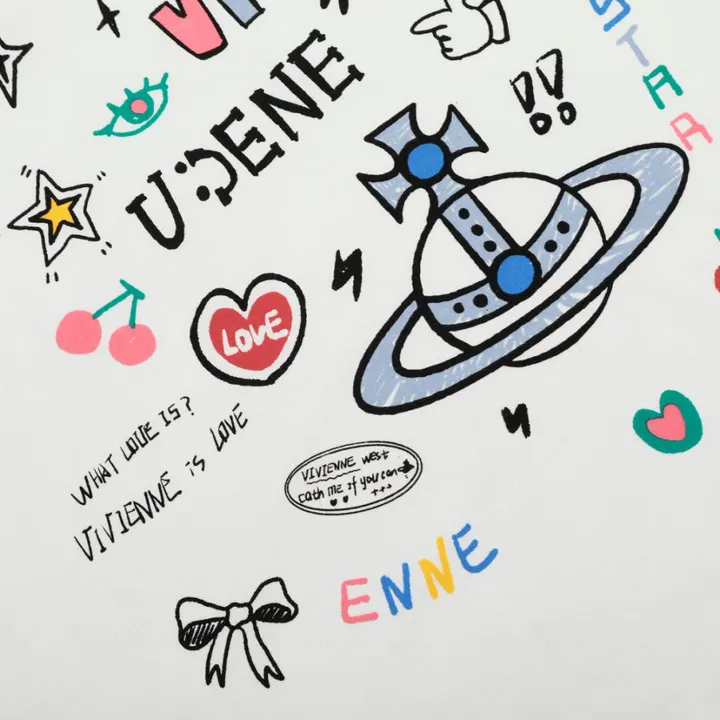 VI
U:DENE
STAR
!!
LOVE
WHAT LOVE IS?
VIVIENNE is LOVE
VIVIENNE West
Cath ME if you can
+++
ENNE